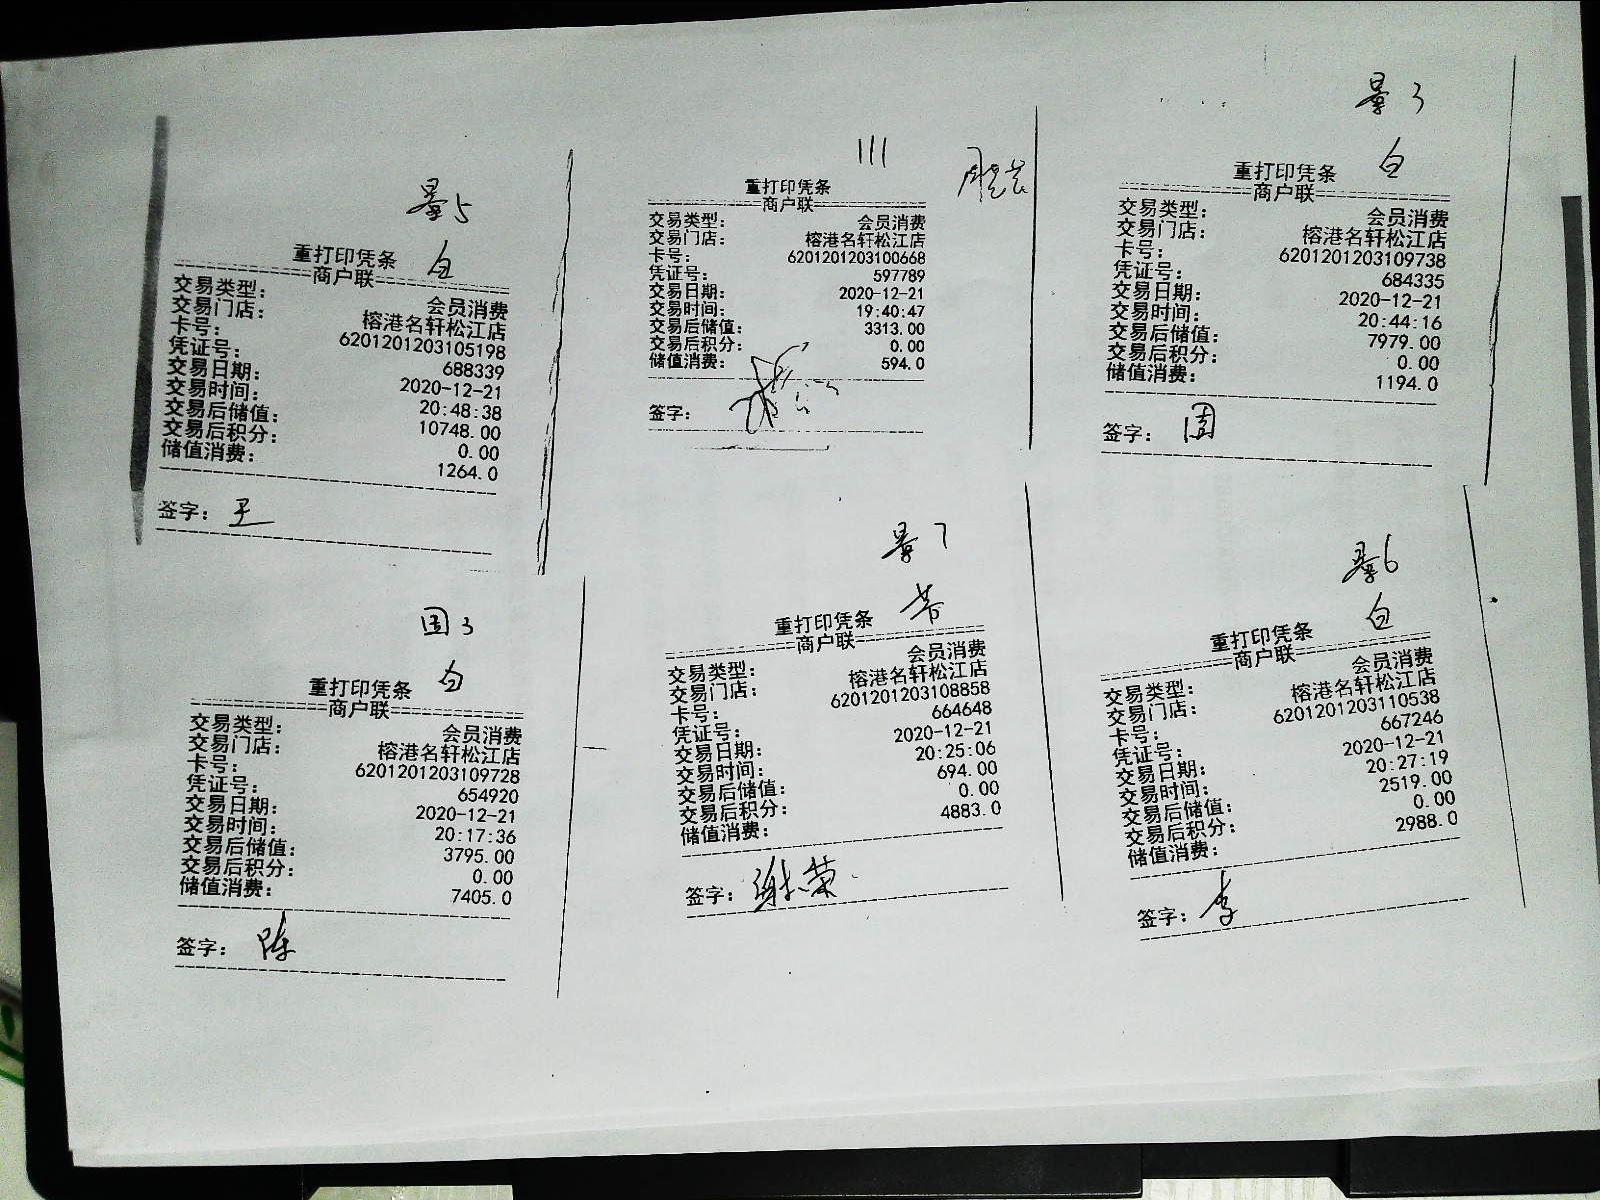 5
白
重打印凭条
商户联
交易类型: 会员消费
交易门店: 榕港名轩松江店
卡号: 6201201203105198
凭证号: 688339
交易日期: 2020-12-21
交易时间: 20:48:38
交易后储值: 10748.00
交易后积分: 0.00
储值消费: 1264.0
签字: 王
111
重打印凭条
商户联
交易类型: 会员消费
交易门店: 榕港名轩松江店
卡号: 6201201203100668
凭证号: 597789
交易日期: 2020-12-21
交易时间: 19:40:47
交易后储值: 3313.00
交易后积分: 0.00
储值消费: 594.0
签字:
3
白
重打印凭条
商户联
交易类型: 会员消费
交易门店: 榕港名轩松江店
卡号: 6201201203109738
凭证号: 684335
交易日期: 2020-12-21
交易时间: 20:44:16
交易后储值: 7979.00
交易后积分: 0.00
储值消费: 1194.0
签字:
3
白
重打印凭条
商户联
交易类型: 会员消费
交易门店: 榕港名轩松江店
卡号: 6201201203109728
凭证号: 654920
交易日期: 2020-12-21
交易时间: 20:17:36
交易后储值: 3795.00
交易后积分: 0.00
储值消费: 7405.0
签字: 陈
7
重打印凭条
商户联
交易类型: 会员消费
交易门店: 榕港名轩松江店
卡号: 6201201203108858
凭证号: 664648
交易日期: 2020-12-21
交易时间: 20:25:06
交易后储值: 694.00
交易后积分: 0.00
储值消费: 4883.0
签字: 谢荣
6
白
重打印凭条
商户联
交易类型: 会员消费
交易门店: 榕港名轩松江店
卡号: 6201201203110538
凭证号: 667246
交易日期: 2020-12-21
交易时间: 20:27:19
交易后储值: 2519.00
交易后积分: 0.00
储值消费: 2988.0
签字: 李